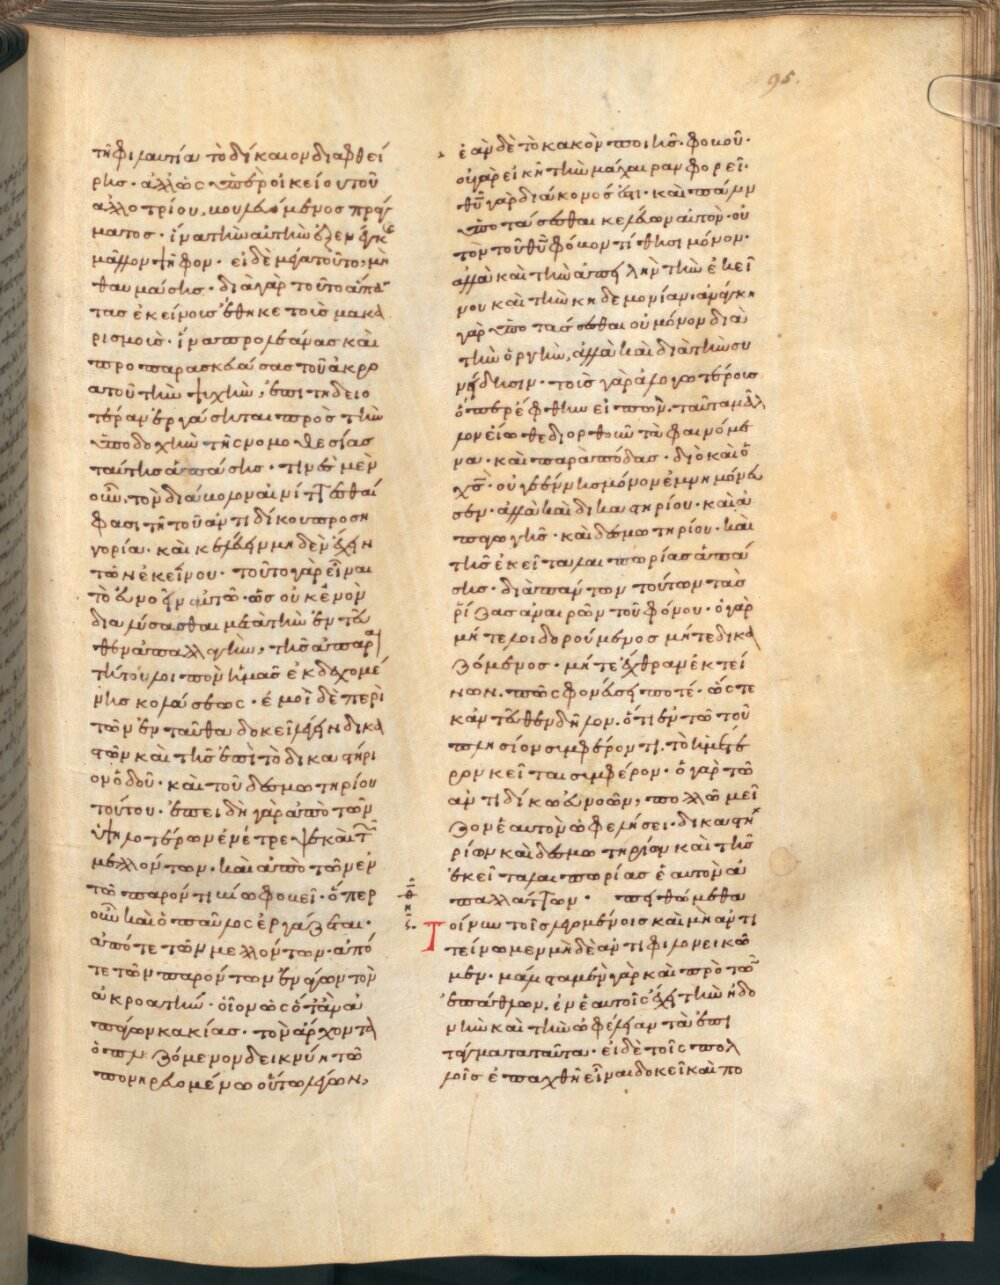 τῆ φιλαυτία τὸ δίκαιον διαφθεί
ρης· ἀλλ' ὡς ὑπὲρ οἰκείου τοῦ
ἀλλοτρίου βουλευόμενος πράγ
ματος· ἵνα τὴν αὐτὴν ἐξενέγκης
μᾶλλον ψῆφον· εἰ δὲ μέγα τοῦτο, μὴ
θαυμάσης· διὰ γὰρ τοῦτο ἅπαν
τας ἐκείνους ἔθηκε τοὺς μακα
ρισμούς· ἵνα προλεάνας καὶ
προπαρασκευάσας τοῦ ἀκρο
ατοῦ τὴν ψυχὴν, ἐπιτηδειο
τέραν ἐργάσηται πρὸς τὴν
ὑποδοχὴν τῆς νομοθεσίας
ταύτης ἁπάσης· τινὲς μὲν
οὖν, τὸν διάβολον αἰνίττεσθαί
φασι τῆ τοῦ ἀντιδίκου προση
γορία· καὶ κελεύειν μηδὲν ἔχειν
τῶν ἐκείνου· τοῦτο γὰρ εἶναι
τὸ εὐνοεῖν αὐτῶ· ὡς οὐκ ἐνὸν
διαλύσασθαι μετὰ τὴν ἐντεῦ
θεν ἀπαλλαγὴν, τῆς ἀπαραι
τήτου λοιπὸν ἡμᾶς ἐκδεχομέ
νης κολάσεως· ἐμοὶ δὲ περὶ
τῶν ἐνταῦθα δοκεῖ λέγειν δικα
στῶν καὶ τῆς ἐπὶ τὸ δικαστήρι
ον ὁδοῦ· καὶ τοῦ δεσμωτηρίου
τούτου· ἐπειδὴ γὰρ ἀπὸ τῶν
ὑψηλοτέρων ἐνέτρεψε καὶ τῶν
μελλόντων· καὶ ἀπὸ τῶν ἐν
τῶ παρόντι βίω φοβεῖ· ὅπερ
οὖν καὶ ὁ παῦλος ἐργάζεται·
ἀπό τε τῶν μελλόντων· ἀπό
τε τῶν παρόντων ἐνάγων τὸν
ἀκροατήν· οἷον ὡς ὅταν ἀ
πάγων κακίας· τὸν ἄρχοντα
ὁπλιζόμενον δεικνύη τῶ
πονηρευομένω οὕτω λέγων,
95.
ἐὰν δὲ τὸ κακὸν ποιῆς· φοβοῦ·
οὐ γὰρ εἰκῆ τὴν μάχαιραν φορεῖ·
θῦ γὰρ διάκονός ἐστι· καὶ πάλιν
ὑποτάσσεσθαι κελεύων αὐτὸν· οὐ
τὸν τοῦ θῦ φόβον τίθησι μόνον·
ἀλλὰ καὶ τὴν ἀπειλὴν τὴν ἐκεί
νου καὶ τὴν κηδεμονίαν· ἀνάγκη
γὰρ ὑποτάσσεσθαι οὐ μόνον διὰ
τὴν ὀργὴν, ἀλλὰ καὶ διὰ τὴν συ
νείδησιν· τοὺς γὰρ ἀλογωτέρους
ὅπερ ἔφθην εἰπὼν, ταῦτα μᾶλ
λον εἴωθε διορθοῦν τὰ φαινόμε
να· καὶ παρὰ πόδας· διὸ καὶ ὁ
χς· οὐ γεέννης μόνον ἐμνημόνευ
σεν· ἀλλὰ καὶ δικαστηρίου· καὶ ἀ
παγωγῆς· καὶ δεσμωτηρίου· καὶ
τῆς ἐκεῖ ταλαιπωρίας ἁπά
σης· διὰ πάντων τούτων τὰς
ῥίζας ἀναιρῶν τοῦ φόνου· ὁ γὰρ
μήτε λοιδορούμενος μήτε δικα
ζόμενος· μήτε ἔχθραν ἐκτεί
νων, πῶς φονεύσει ποτέ· ὥστε
κἀντεῦθεν δῆλον, ὅτι ἐν τῶ τοῦ
πλησίον συμφέροντι, τὸ ἡμέτε
ρον κεῖται συμφέρον· ὁ γὰρ τῶ
ἀντιδίκω εὐνοῶν, πολλῶ μεῖ
ζον ἑαυτὸν ὠφελήσει· δικαστη
ρίων καὶ δεσμωτηρίων καὶ τῆς
ἐκεῖ ταλαιπωρίας ἑαυτὸν ἀ
παλλάττων· πειθώμεθα
Τοίνυν τοῖς λεγομένοις καὶ μὴ ἀντι
τείνωμεν μηδὲ ἀντιφιλονεικῶ
μεν· μάλιστα μὲν γὰρ καὶ πρὸ τῶν
ἐπάθλων, ἐν ἑαυτοῖς ἔχει τὴν ἡδο
νὴν καὶ τὴν ὠφέλειαν τὰ ἐπι
τάγματα ταῦτα· εἰ δὲ τοῖς πολ
λοῖς ἐπαχθῆ εἶναι δοκεῖ καὶ πο